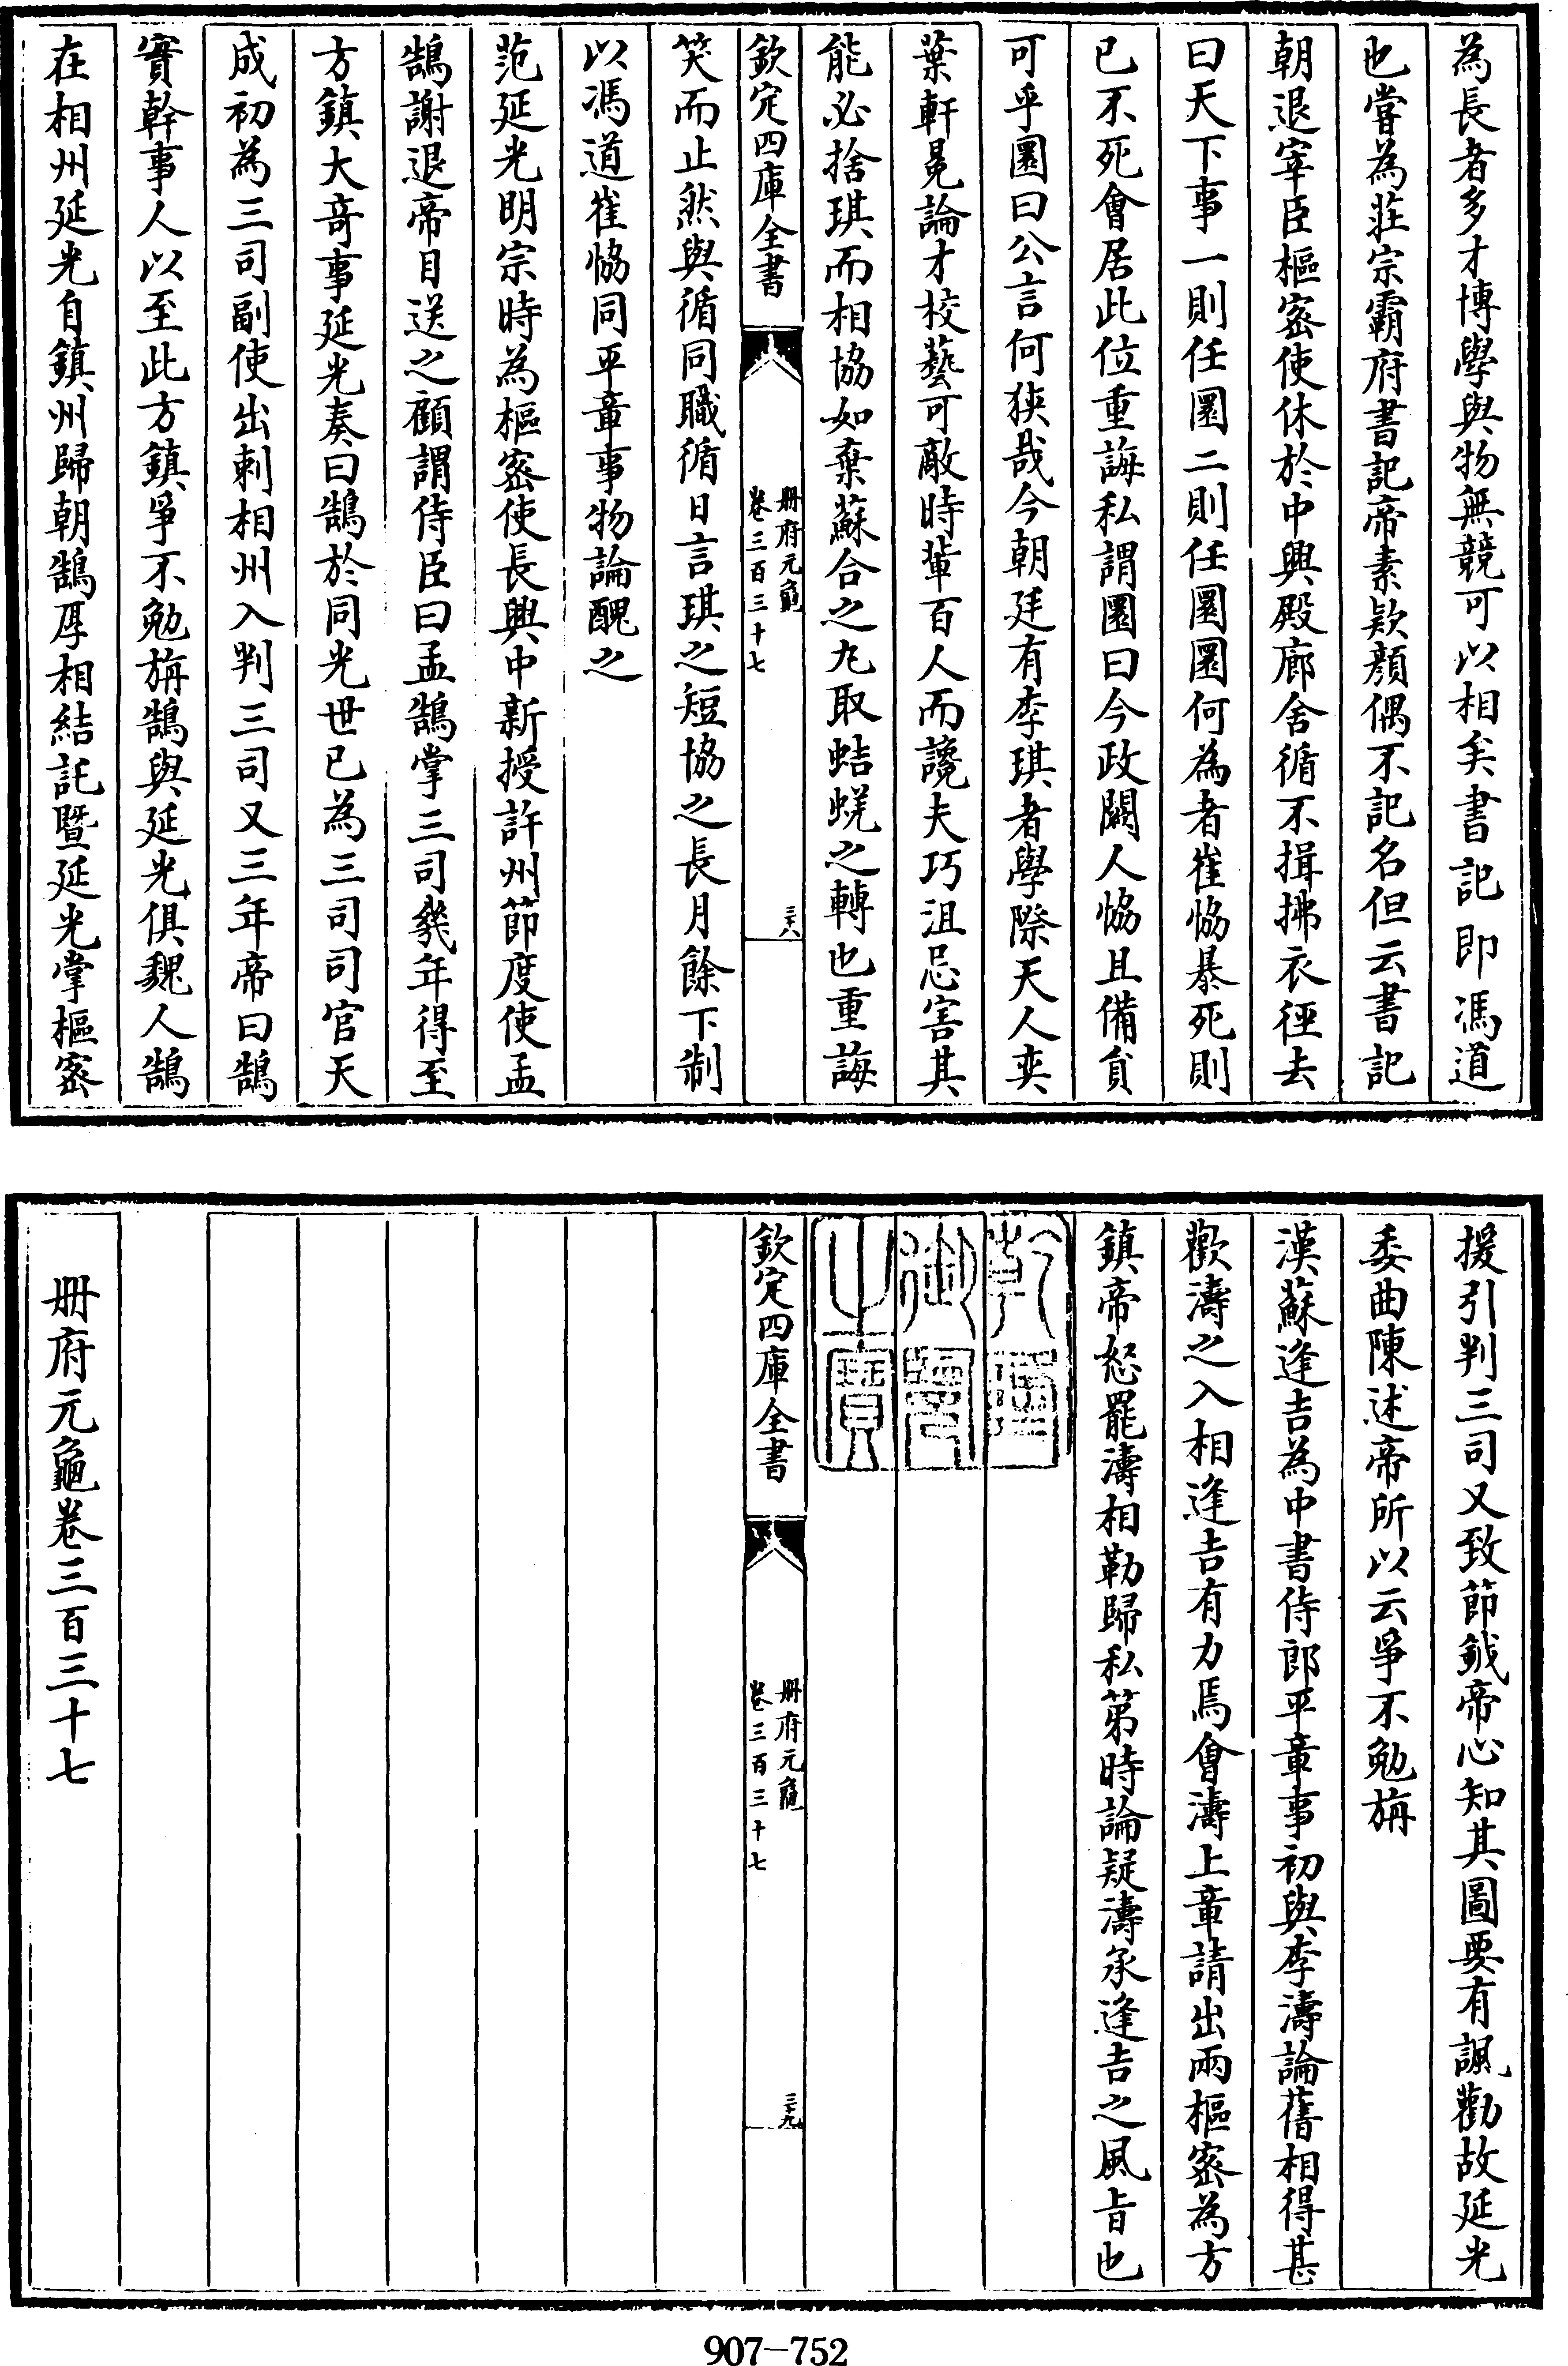 為長者多才博學與物無競可以相矣書記即馮道
也嘗為莊宗霸府書記帝素欵顔偶不記名但云書記
朝退宰臣樞密使休於中興殿廊舍循不揖拂衣徑去
曰天下事一則任圜二則任圜圜何為者崔恊暴死則
已不死會居此位重誨私謂圜曰今政闕人恊且備貟
可乎圜曰公言何狹哉今朝廷有李琪者學際天人奕
葉軒冕論才校藝可敵時輩百人而讒夫巧沮忌害其
能必捨琪而相協如棄蘇合之丸取蛣蜣之轉也重誨
欽定四庫全書
册府元龜
卷三百三十七
三十八
笑而止然與循同職循日言琪之短協之長月餘下制
以馮道崔恊同平章事物論醜之
范延光明宗時為樞密使長興中新授許州節度使孟
鵠謝退帝目送之顧謂侍臣曰孟鵠掌三司幾年得至
方鎮大奇事延光奏曰鵠於同光世已為三司司官天
成初為三司副使出刺相州入判三司又三年帝曰鵠
實幹事人以至此方鎮爭不勉旃鵠與延光俱魏人鵠
在相州延光自鎮州歸朝鵠厚相結託暨延光掌樞密
援引判三司又致節鉞帝心知其圖要有諷勸故延光
委曲陳述帝所以云爭不勉旃
漢蘇逢吉為中書侍郎平章事初與李濤論舊相得甚
歡濤之入相逢吉有力焉會濤上章請出兩樞密為方
鎮帝怒罷濤相勒歸私第時論疑濤承逢吉之風旨也
乾隆
御覽
之寶
欽定四庫全書
册府元龜
卷三百三十七
三十九
册府元龜卷三百三十七
907-752